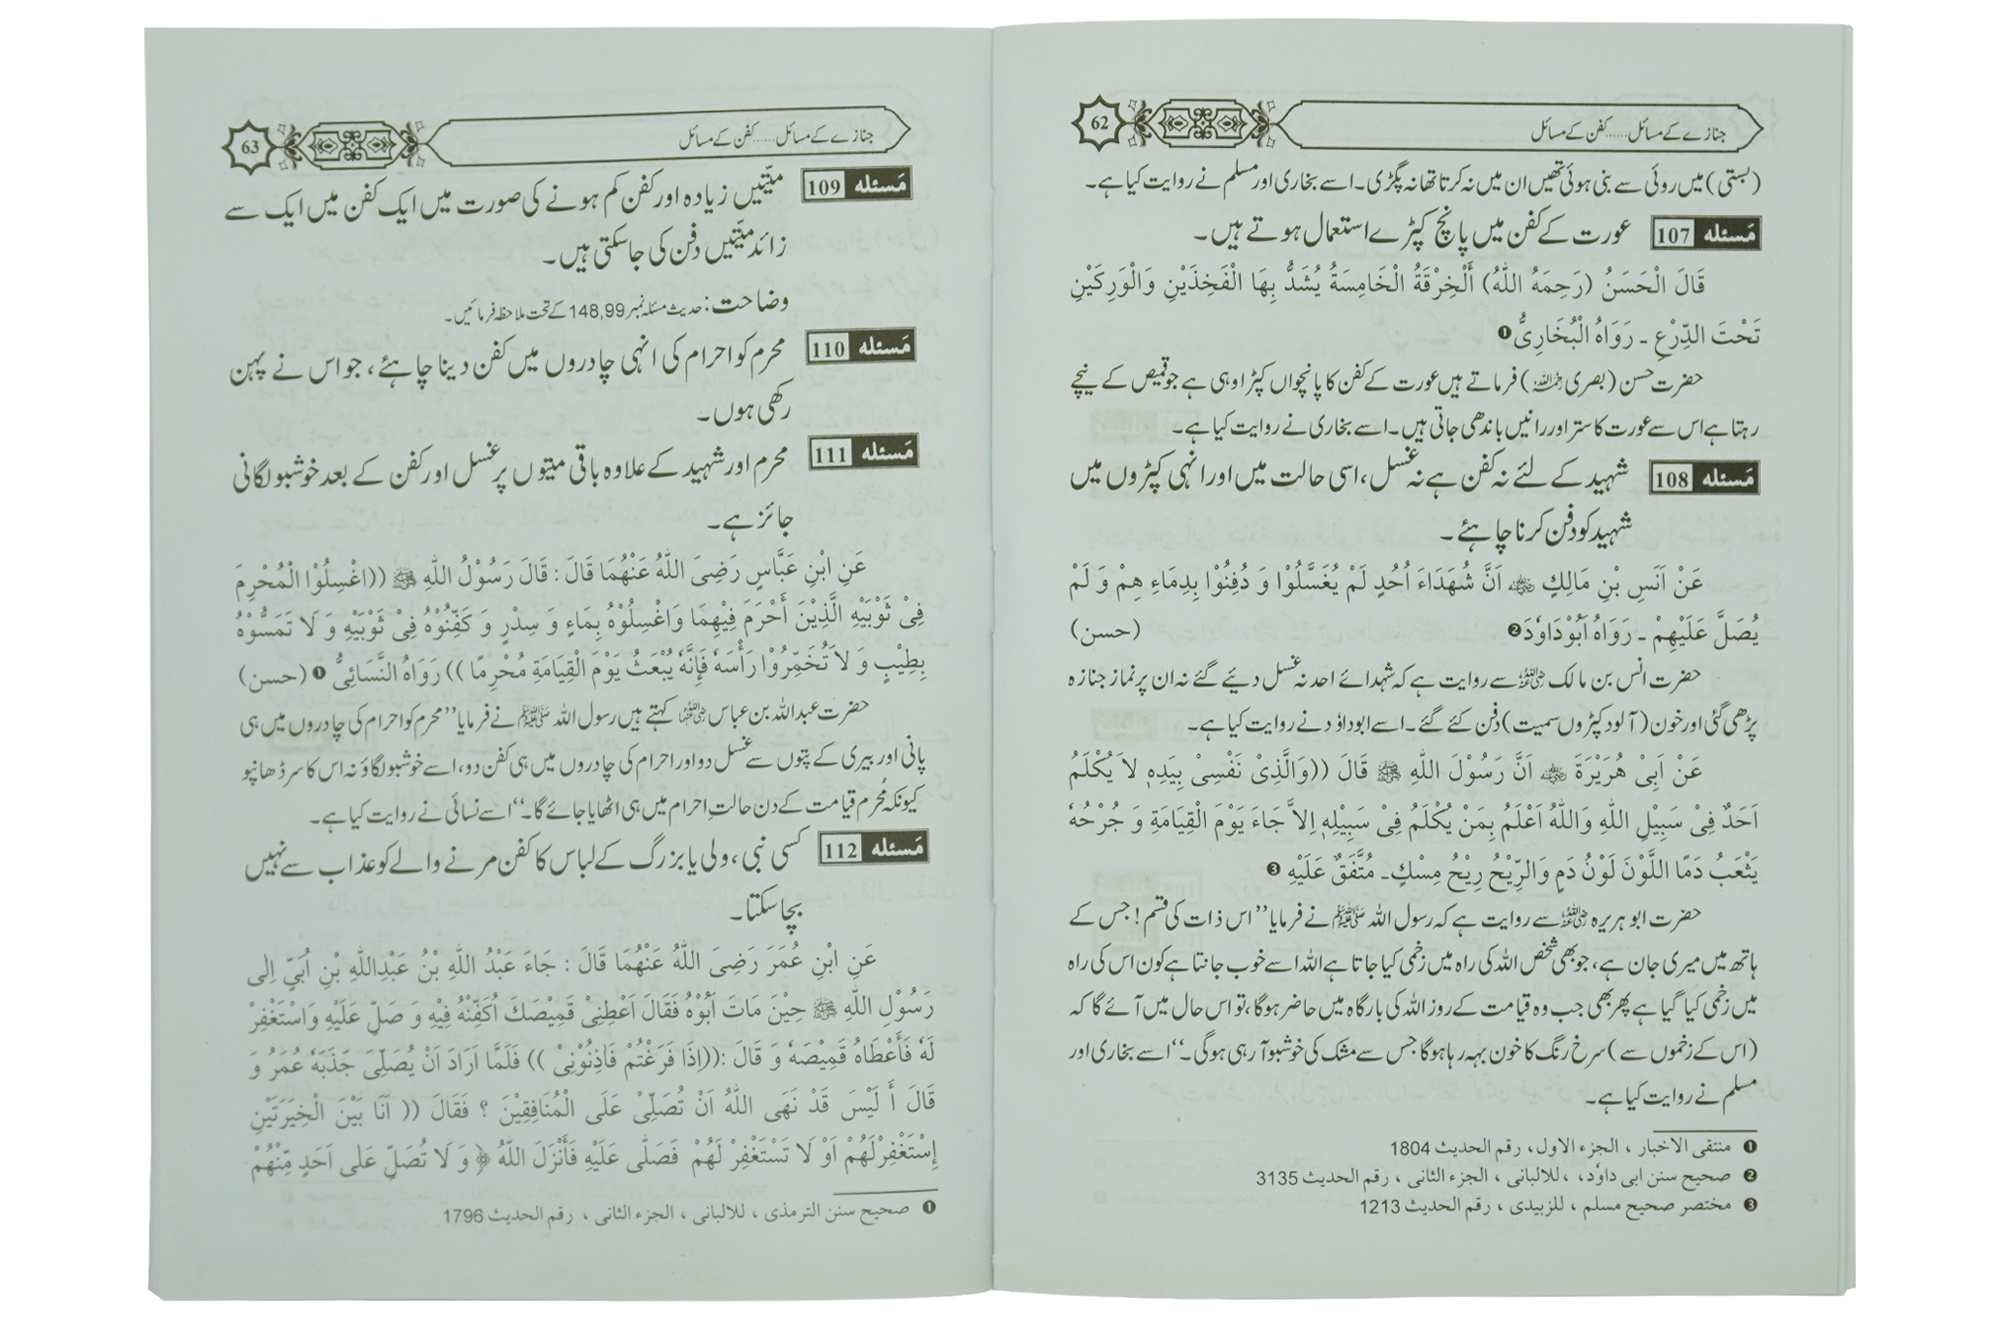 جنازے کے مسائل......کفن کے مسائل
62
(بستی) میں روئی سے بنی ہوئی تھیں ان میں نہ کرتا تھا نہ پگڑی۔ اسے بخاری اور مسلم نے روایت کیا ہے۔
مَسئلہ 107 عورت کے کفن میں پانچ کپڑے استعمال ہوتے ہیں۔
قَالَ الْحَسَنُ (رَحِمَهُ اللّٰهُ) أَلْخِرْقَةُ الْخَامِسَةُ يُشَدُّ بِهَا الْفَخِذَيْنِ وَالْوَرِكَيْنِ
تَحْتَ الدِّرْعِ ۔ رَوَاهُ الْبُخَارِيُّ ❶
حضرت حسن (بصری رحمہ اللہ) فرماتے ہیں عورت کے کفن کا پانچواں کپڑا وہی ہے جو قمیص کے نیچے
رہتا ہے اس سے عورت کا ستر اور رانیں باندھی جاتی ہیں۔ اسے بخاری نے روایت کیا ہے۔
مَسئلہ 108 شہید کے لئے نہ کفن ہے نہ غسل، اسی حالت میں اور انہی کپڑوں میں
شہید کو دفن کرنا چاہئے۔
عَنْ اَنَسِ بْنِ مَالِكٍ ؓ اَنَّ شُهَدَاءَ اُحُدٍ لَمْ يُغَسَّلُوْا وَ دُفِنُوْا بِدِمَاءِ هِمْ وَ لَمْ
يُصَلَّ عَلَيْهِمْ ۔ رَوَاهُ اَبُوْدَاوٗدَ ❷ (حسن)
حضرت انس بن مالک ؓ سے روایت ہے کہ شہدائے احد نہ غسل دیئے گئے نہ ان پر نماز جنازہ
پڑھی گئی اور خون (آلود کپڑوں سمیت) دفن کئے گئے۔ اسے ابوداؤد نے روایت کیا ہے۔
عَنْ اَبِىْ هُرَيْرَةَ ؓ اَنَّ رَسُوْلَ اللّٰهِ ﷺ قَالَ ((وَالَّذِىْ نَفْسِىْ بِيَدِهٖ لاَ يُكْلَمُ
اَحَدٌ فِىْ سَبِيْلِ اللّٰهِ وَاللّٰهُ اَعْلَمُ بِمَنْ يُكْلَمُ فِىْ سَبِيْلِهٖ اِلاَّ جَاءَ يَوْمَ الْقِيَامَةِ وَ جُرْحُهٗ
يَثْعَبُ دَمًا اللَّوْنَ لَوْنُ دَمٍ وَالرِّيْحُ رِيْحُ مِسْكٍ۔ مُتَّفَقٌ عَلَيْهِ ❸
حضرت ابو ہریرہ ؓ سے روایت ہے کہ رسول اللہ ﷺ نے فرمایا ”اس ذات کی قسم! جس کے
ہاتھ میں میری جان ہے، جو بھی شخص اللہ کی راہ میں زخمی کیا جاتا ہے اللہ اسے خوب جانتا ہے کون اس کی راہ
میں زخمی کیا گیا ہے پھر بھی جب وہ قیامت کے روز اللہ کی بارگاہ میں حاضر ہوگا، تو اس حال میں آئے گا کہ
(اس کے زخموں سے) سرخ رنگ کا خون بہہ رہا ہوگا جس سے مشک کی خوشبو آ رہی ہوگی۔“ اسے بخاری اور
مسلم نے روایت کیا ہے۔
❶ منتقی الاخبار ، الجزء الاول، رقم الحدیث 1804
❷ صحیح سنن ابی داوٗد، ،للالبانی ، الجزء الثانی ، رقم الحدیث 3135
❸ مختصر صحیح مسلم ، للزبیدی ، رقم الحدیث 1213
جنازے کے مسائل......کفن کے مسائل
63
مَسئلہ 109 میّتیں زیادہ اور کفن کم ہونے کی صورت میں ایک کفن میں ایک سے
زائد میّتیں دفن کی جا سکتی ہیں۔
وضاحت: حدیث مسئلہ نمبر 148,99 کے تحت ملاحظہ فرمائیں۔
مَسئلہ 110 محرم کو احرام کی انہی چادروں میں کفن دینا چاہئے، جو اس نے پہن
رکھی ہوں۔
مَسئلہ 111 محرم اور شہید کے علاوہ باقی میتوں پر غسل اور کفن کے بعد خوشبو لگانی
جائز ہے۔
عَنِ ابْنِ عَبَّاسٍ رَضِىَ اللّٰهُ عَنْهُمَا قَالَ : قَالَ رَسُوْلُ اللّٰهِ ﷺ ((اغْسِلُوْا الْمُحْرِمَ
فِىْ ثَوْبَيْهِ الَّذِيْنَ أَحْرَمَ فِيْهِمَا وَاغْسِلُوْهُ بِمَاءٍ وَ سِدْرٍ وَ كَفِّنُوْهُ فِىْ ثَوْبَيْهِ وَ لَا تَمَسُّوْهُ
بِطِيْبٍ وَ لاَ تُخَمِّرُوْا رَأْسَهٗ فَإِنَّهٗ يُبْعَثُ يَوْمَ الْقِيَامَةِ مُحْرِمًا )) رَوَاهُ النَّسَائِىُّ ❶ (حسن)
حضرت عبداللہ بن عباس ؓ کہتے ہیں رسول اللہ ﷺ نے فرمایا ”محرم کو احرام کی چادروں میں ہی
پانی اور بیری کے پتوں سے غسل دو اور احرام کی چادروں میں ہی کفن دو، اسے خوشبو لگاؤ نہ اس کا سر ڈھانپو
کیونکہ مُحرم قیامت کے دن حالتِ احرام میں ہی اٹھایا جائے گا۔“ اسے نسائی نے روایت کیا ہے۔
مَسئلہ 112 کسی نبی، ولی یا بزرگ کے لباس کا کفن مرنے والے کو عذاب سے نہیں
بچا سکتا۔
عَنِ ابْنِ عُمَرَ رَضِىَ اللّٰهُ عَنْهُمَا قَالَ : جَاءَ عَبْدُ اللّٰهِ بْنُ عَبْدِاللّٰهِ بْنِ اُبَىٍّ اِلٰى
رَسُوْلِ اللّٰهِ ﷺ حِيْنَ مَاتَ اَبُوْهُ فَقَالَ اَعْطِنِىْ قَمِيْصَكَ اُكَفِّنْهُ فِيْهِ وَ صَلِّ عَلَيْهِ وَاسْتَغْفِرْ
لَهٗ فَأَعْطَاهُ قَمِيْصَهٗ وَ قَالَ :((اِذَا فَرَغْتُمْ فَاٰذِنُوْنِىْ )) فَلَمَّا اَرَادَ اَنْ يُصَلِّىَ جَذَبَهٗ عُمَرُ وَ
قَالَ أَ لَيْسَ قَدْ نَهَى اللّٰهُ اَنْ تُصَلِّىْ عَلَى الْمُنَافِقِيْنَ ؟ فَقَالَ (( اَنَا بَيْنَ الْخِيَرَتَيْنِ
اِسْتَغْفِرْلَهُمْ اَوْ لَا تَسْتَغْفِرْ لَهُمْ فَصَلّٰى عَلَيْهِ فَأَنْزَلَ اللّٰهُ ﴿ وَ لَا تُصَلِّ عَلٰى اَحَدٍ مِّنْهُمْ
❶ صحیح سنن الترمذی ، للالبانی ، الجزء الثانی ، رقم الحدیث 1796